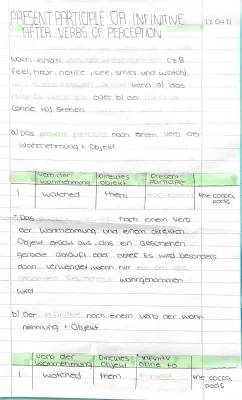 PRESENT PARTICIPLE OR INFINITIVE
AFTER VERBS OF PERCEPTION
Nach einem (z.B
feel, hear, notice, see, smell und watch)
kann a) das
oder b) der
(ohne to) stehen
a) Das present participle nach einem Verb der
Wahrnehmung + Objekt
Verb der Wahrnehmung Direktes Objekt Present Participle
I watched them the cocoa pods
• Das nach einem Verb
der Wahrnehmung und einem direkten
Objekt drückt aus, dass ein Geschehen
gerade abläuft oder ablief. Es wird besonders
dann verwendet, wenn nur ein Teil des
gesamten Geschehens wahrgenommen
wird
b) Der Infinitive nach einem Verb der Wahr-
nehmung + Objekt
Verb der Wahrnehmung Direktes Objekt Infinitiv ohne to
I watched them the cocoa pods